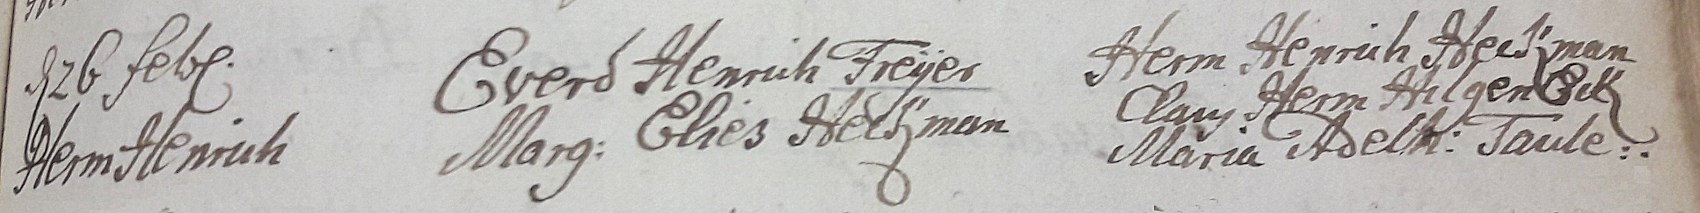 d 26 febr.
Herm Henrich
Everd Henrich Freÿer
Marg: Elies Heckman
Herm Henrich Heckman
Claus Herm Hilgen Eck
Maria Adelh: Taule:.